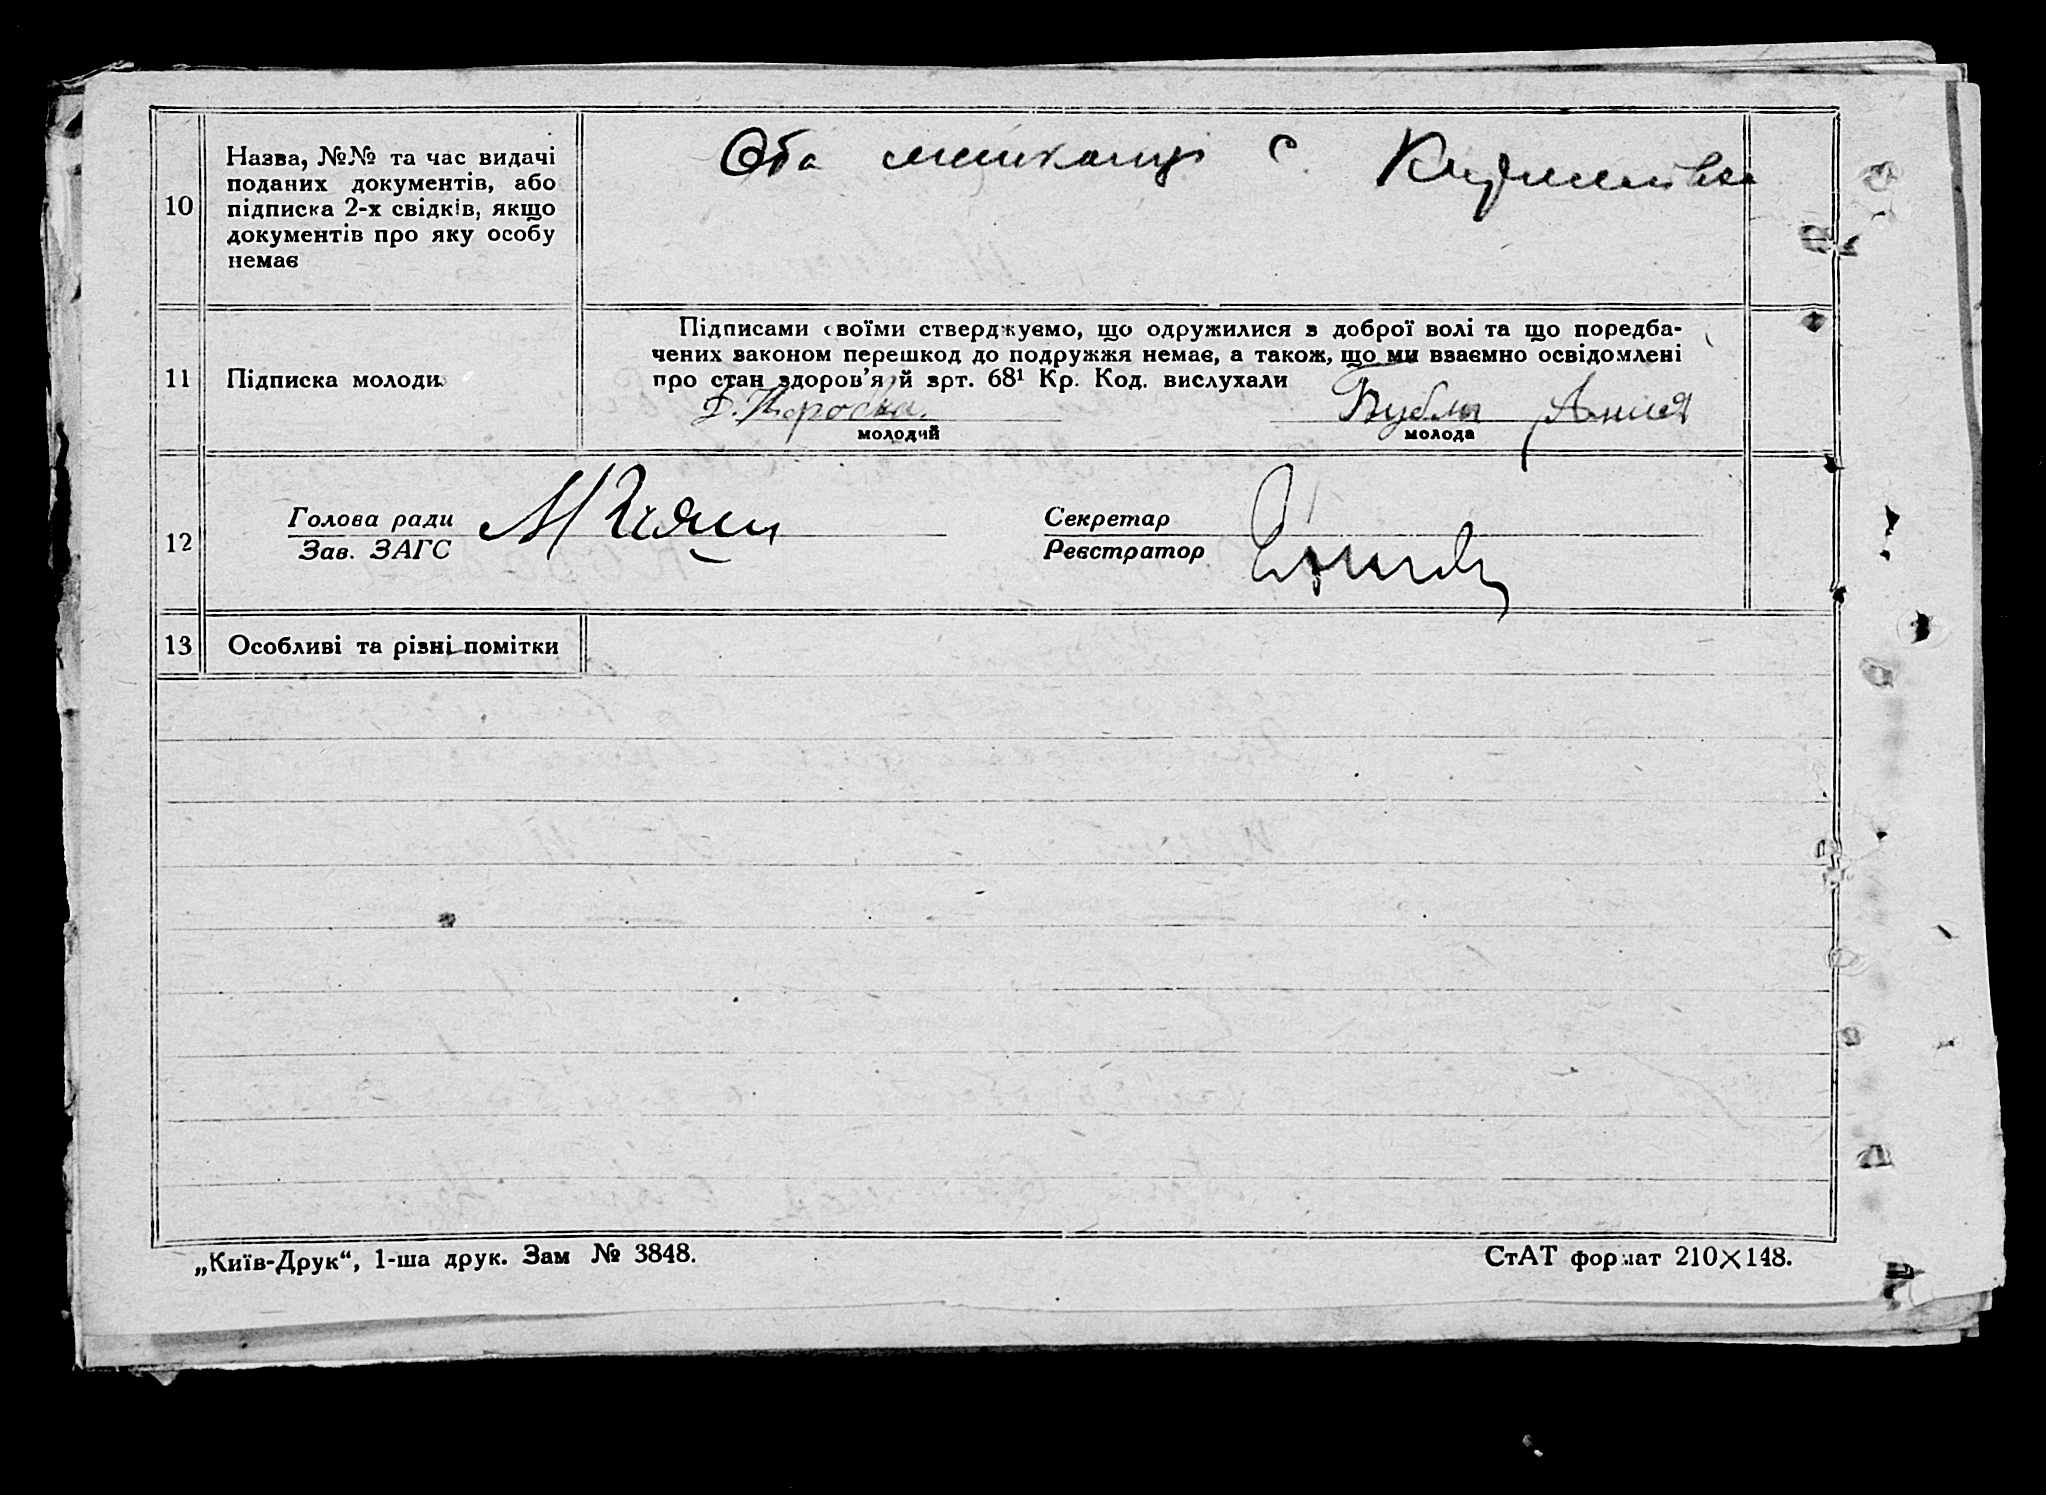 10
Назва, №№ та час видачі
поданих документів, або
підписка 2-х свідків, якщо
документів про яку особу
немає
Оба мешканці с.
11
Підписка молодих
Підписами своїми стверджуємо, що одружилися з доброї волі та що поредба-
чених законом перешкод до подружжя немає, а також, що ми взаємно освідомлені
про стан здоров'я й арт. 68¹ Кр. Код. вислухали
молодий
молода
12
Голова ради
Зав. ЗАГС
Секретар
Реєстратор
13
Особливі та різні помітки
„Київ-Друк“, 1-ша друк. Зам № 3848.
СтАТ формат 210×148.